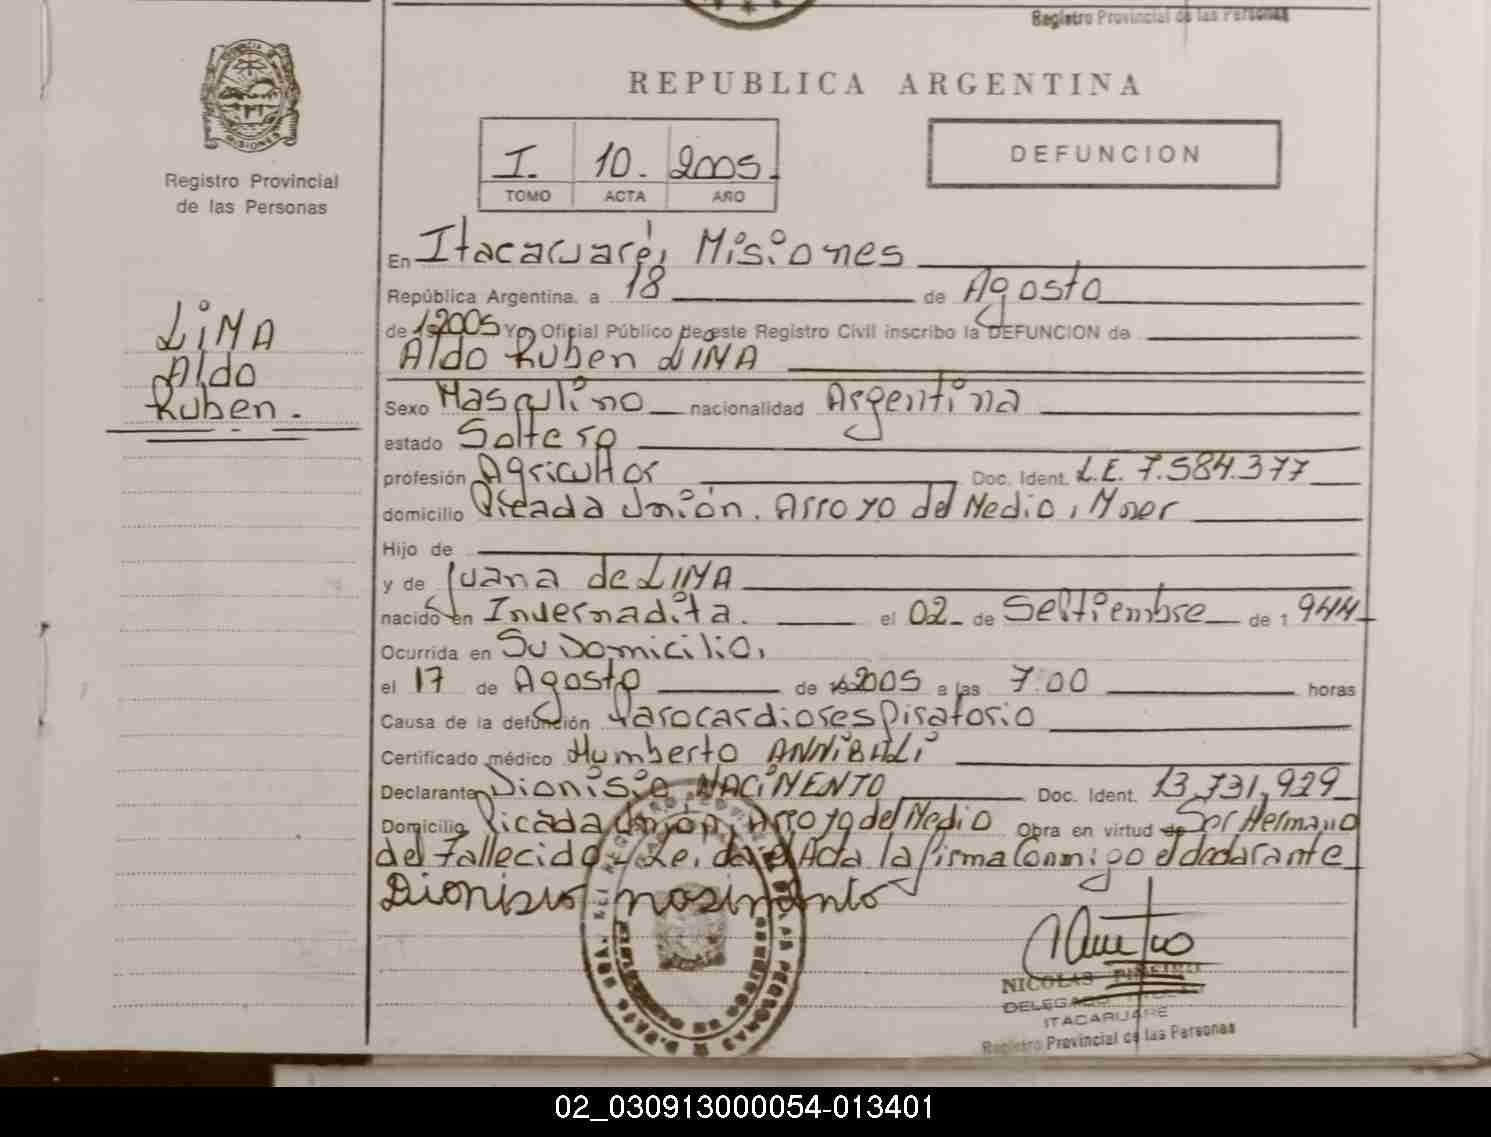 Registro Provincial de las Personas
MISIONES
Registro Provincial
de las Personas
LIMA
Aldo
Ruben.
REPUBLICA ARGENTINA
I. 10. 2005.
TOMO ACTA AÑO
DEFUNCION
En Itacaruaré, Misiones
República Argentina, a 18 de Agosto
de 2005 Yo, Oficial Público de este Registro Civil inscribo la DEFUNCION de
Aldo Ruben LIMA
Sexo Masculino nacionalidad Argentina
estado Soltero
profesión Agricultor Doc. Ident. L.E. 7.584.377
domicilio Picada Unión. Arroyo del Medio, Mner
Hijo de
y de Juana de LIMA
nacido en Invernadita. el 02 de Settiembre de 1944
Ocurrida en Su Domicilio,
el 17 de Agosto de 2005 a las 7:00 horas
Causa de la defunción Parocardiorespiratorio
Certificado médico Humberto ANNIBALI
Declarante Dionisio NACIMENTO Doc. Ident. 13.731.929
Domicilio Picada Unión, Arroyo del Medio Obra en virtud de Ser Hermano
del Fallecido - Leida el Acta la firma Conmigo el declarante
Dionisio nosimento
NICOLAS
DELEGADO
ITACARUARE
Registro Provincial de las Personas
02_030913000054-013401